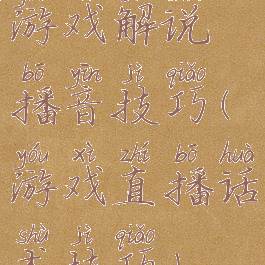 游戏解说
bō yīn jì qiǎo
播音技巧(
yóu xì zhí bō huà
游戏直播话
shù jì qiǎo
术技巧)